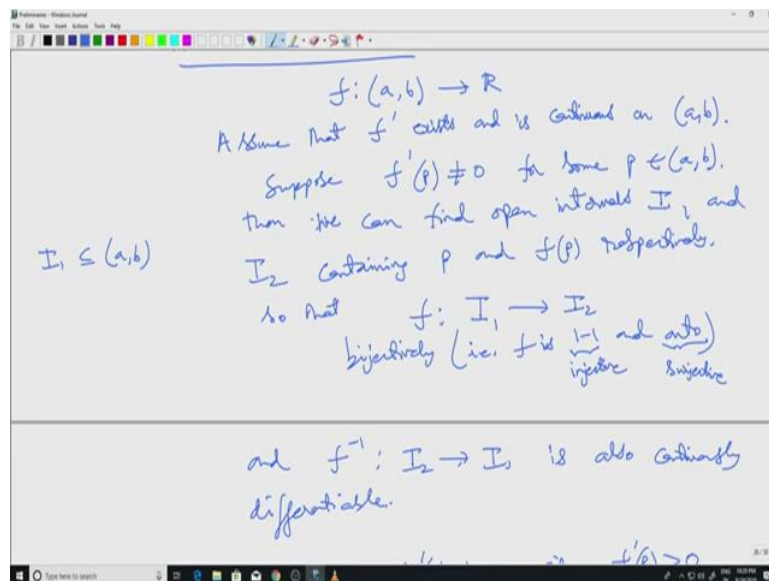 Preliminaries - Windows Journal
File Edit View Insert Actions Tools Help
f: (a,b) → R
Assume that f' exists and is continuous on (a,b).
Suppose f'(p) ≠ 0 for some p ∈ (a,b).
then we can find open intervals I₁ and
I₁ ⊆ (a,b)
I₂ containing p and f(p) respectively.
so that f: I₁ → I₂
bijectively (i.e. f is 1-1 and onto)
injective surjective
and f⁻¹: I₂ → I₁ is also continuously
differentiable.
f'(p) > 0
Type here to search
ENG